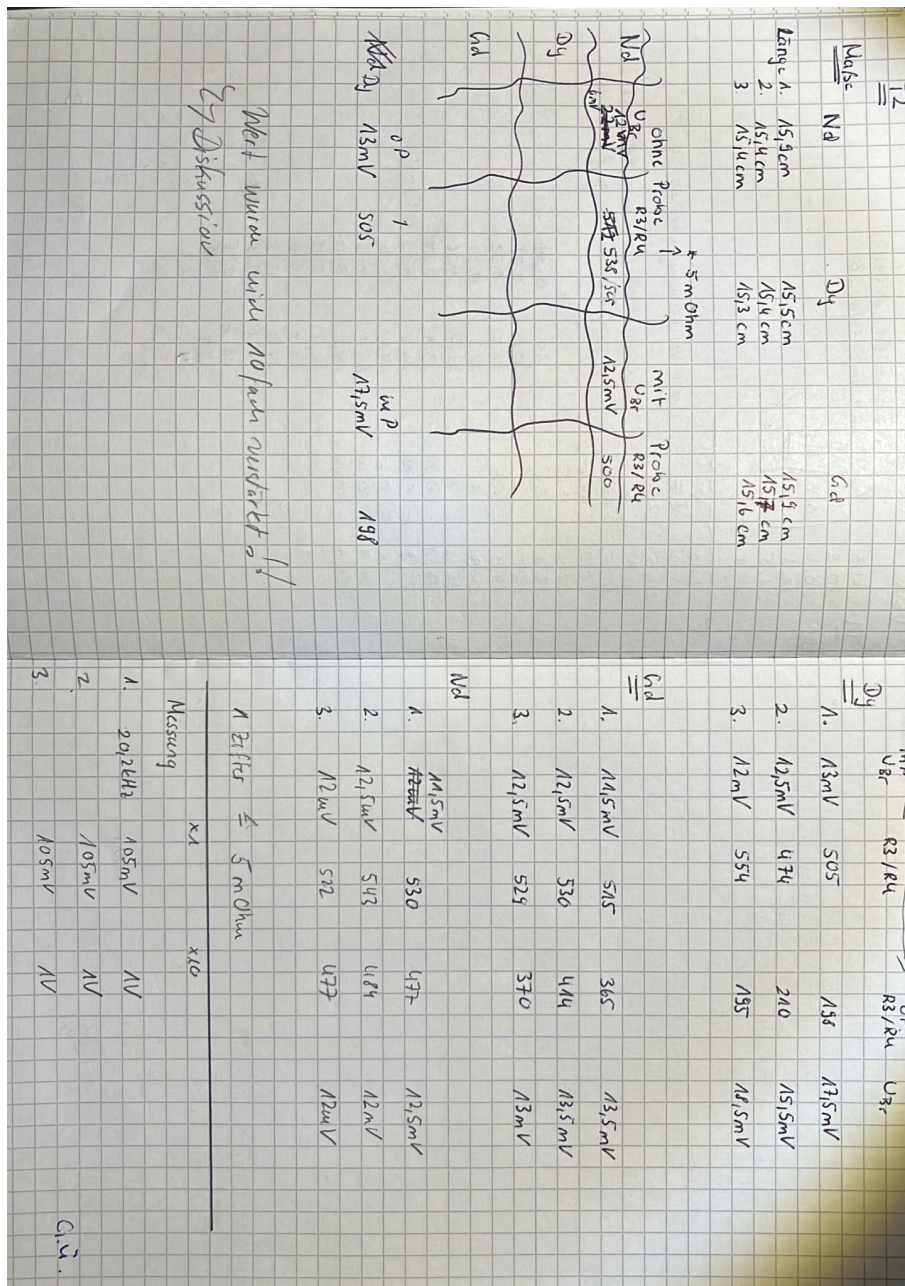 12
Maße Nd Dy Gd
Länge 1. 15,9cm 15,5cm 15,9 cm
2. 15,4cm 15,4cm 15,7 cm
3. 15,4cm 15,3 cm 15,6 cm
* 5 mOhm
ohne Probe mit Probe
UBr R3/R4 UBr R3/R4
Nd 12mV 538 12,5mV 500
Dy
Gd
oP mP
Dy 13mV 505 17,5mV 198
Wert wurde nich 10fach verstärkt!!
↳ Diskussion
Dy UBr R3/R4 R3/R4 UBr
1. 13mV 505 198 17,5mV
2. 12,5mV 474 210 15,5mV
3. 12mV 554 195 18,5mV
Gd
1. 11,5mV 515 365 13,5mV
2. 12,5mV 530 414 13,5mV
3. 12,5mV 529 370 13mV
Nd
1. 11,5mV 530 477 12,5mV
2. 12,5mV 543 484 12mV
3. 12mV 522 477 12mV
1 Ziffer ≙ 5 mOhm
Messung x1 x10
1. 20,2kHz 105mV 1V
2. 105mV 1V
3. 105mV 1V
G.Ü.